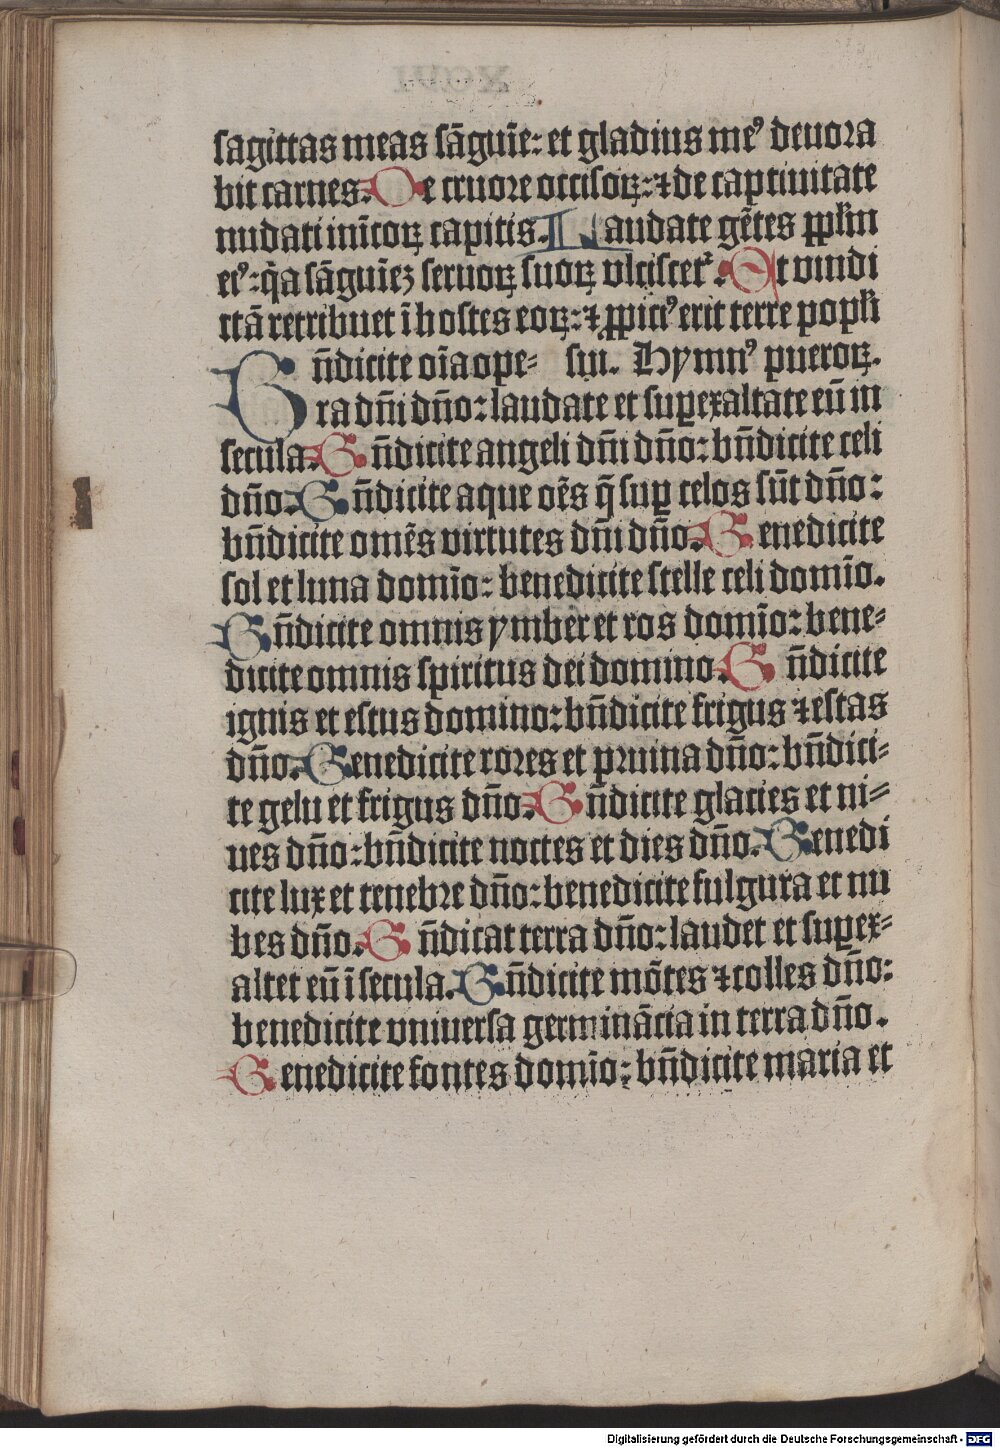 sagittas meas sāguīe: et gladius me⁹ deuora
bit carnes. De cruore occisoꝝ: ⁊ de captiuitate
nudati inīcoꝝ capitis. Laudate gētes pplm̄
ei⁹: q̄a sāguīeꝫ seruoꝝ suoꝝ vlciscet᷑. Et vindi
ctā retribuet ī hostes eoꝝ: ⁊ ꝓpici⁹ erit terre popli
Bn̄dicite oīa ope⸗ sui. Hymn⁹ pueroꝝ.
ra dn̄i dn̄o: laudate et suꝑexaltate eū in
secula. Bn̄dicite angeli dn̄i dn̄o: bn̄dicite celi
dn̄o. Bn̄dicite aque oēs q̄ suꝑ celos sūt dn̄o:
bn̄dicite omēs virtutes dn̄i dn̄o. Benedicite
sol et luna domīo: benedicite stelle celi domīo.
Bn̄dicite omnis ymber et ros domīo: bene⸗
dicite omnis spiritus dei domino. Bn̄dicite
ignis et estus domino: bn̄dicite frigus ⁊ estas
dn̄o. Benedicite rores et pruina dn̄o: bn̄dici⸗
te gelu et frigus dn̄o. Bn̄dicite glacies et ni⸗
ues dn̄o: bn̄dicite noctes et dies dn̄o. Benedi
cite lux et tenebre dn̄o: benedicite fulgura et nu
bes dn̄o. Bn̄dicat terra dn̄o: laudet et suꝑex⸗
altet eū ī secula. Bn̄dicite mōtes ⁊ colles dn̄o:
benedicite vniuersa germinācia in terra dn̄o.
Benedicite fontes domīo: bn̄dicite maria et
Digitalisierung gefördert durch die Deutsche Forschungsgemeinschaft - DFG